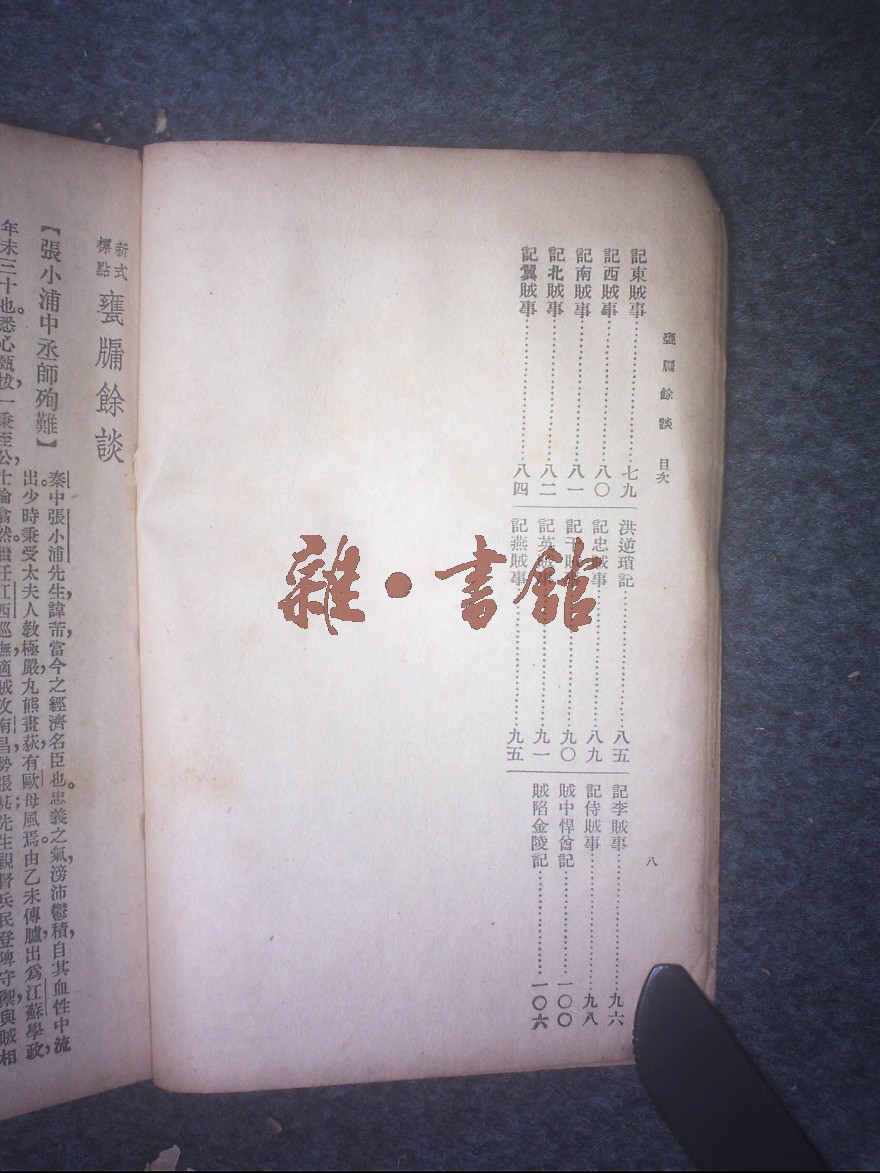 甕牖餘談 目次 八
記東賊事……七九
記西賊事……八〇
記南賊事……八一
記北賊事……八二
記翼賊事……八四
洪逆瑣記……八五
記忠賊事……八九
記干賊事……九〇
記英賊事……九一
記燕賊事……九五
記李賊事……九六
記侍賊事……九八
賊中悍酋記……一〇〇
賊陷金陵記……一〇六
雜·書館
新式標點 甕牖餘談
【張小浦中丞師殉難】
秦中張小浦先生,諱芾,當今之經濟名臣也。忠義之氣,滂沛鬱積,自其血性中流
出。少時秉受太夫人教極嚴,九熊畫荻,有歐母風焉。由乙未傳臚,出爲江蘇學政,
年未三十也。悉心甄拔,一秉至公,士論翕然。繼任江西巡撫,適賊攻南昌,勢張甚;先生親督兵民登陴守禦,與賊相